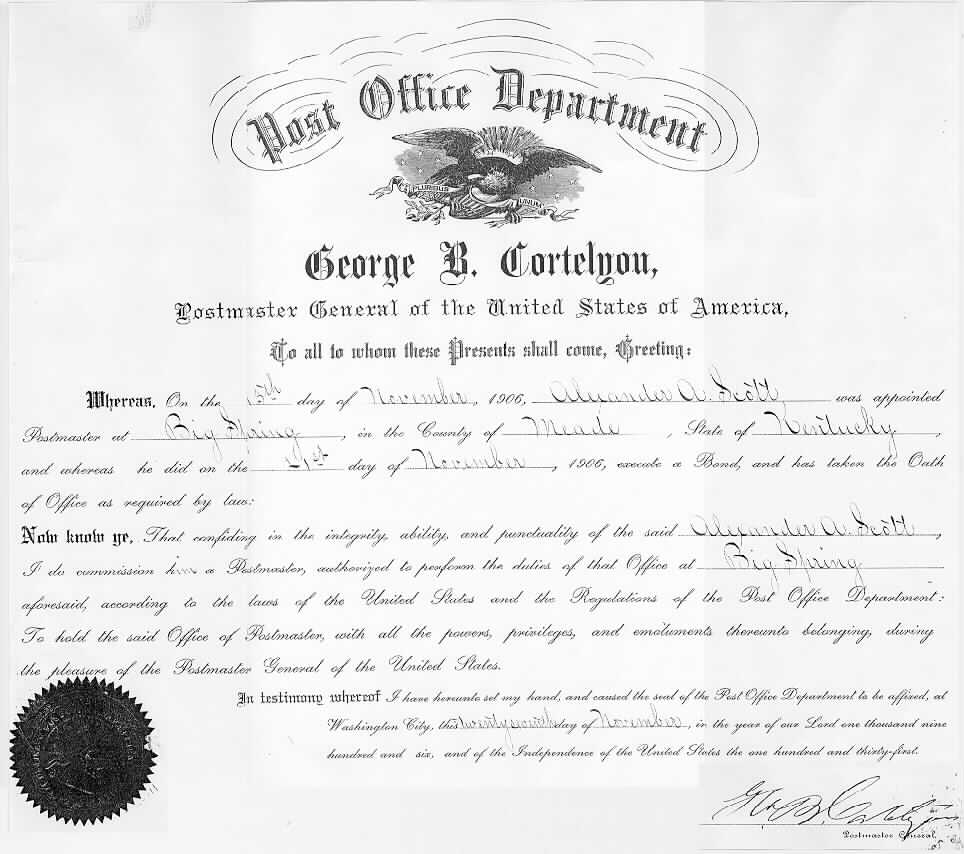 Post Office Department
E PLURIBUS UNUM
George B. Cortelyou,
Postmaster General of the United States of America,
To all to whom these Presents shall come, Greeting:
Whereas, On the 15th day of November, 1906, Alexander A. Scott was appointed
Postmaster at Big Spring, in the County of Meade, State of Kentucky,
and whereas he did on the 21st day of November, 1906, execute a Bond, and has taken the Oath
of Office as required by law:
Now know ye, That confiding in the integrity, ability, and punctuality of the said Alexander A. Scott,
I do commission him a Postmaster, authorized to perform the duties of that Office at Big Spring
aforesaid, according to the laws of the United States and the Regulations of the Post Office Department:
To hold the said Office of Postmaster, with all the powers, privileges, and emoluments thereunto belonging, during
the pleasure of the Postmaster General of the United States.
In testimony whereof I have hereunto set my hand, and caused the seal of the Post Office Department to be affixed, at
Washington City, this twentyseventh day of November, in the year of our Lord one thousand nine
hundred and six, and of the Independence of the United States the one hundred and thirty-first.
Geo. B. Cortelyou
Postmaster General.